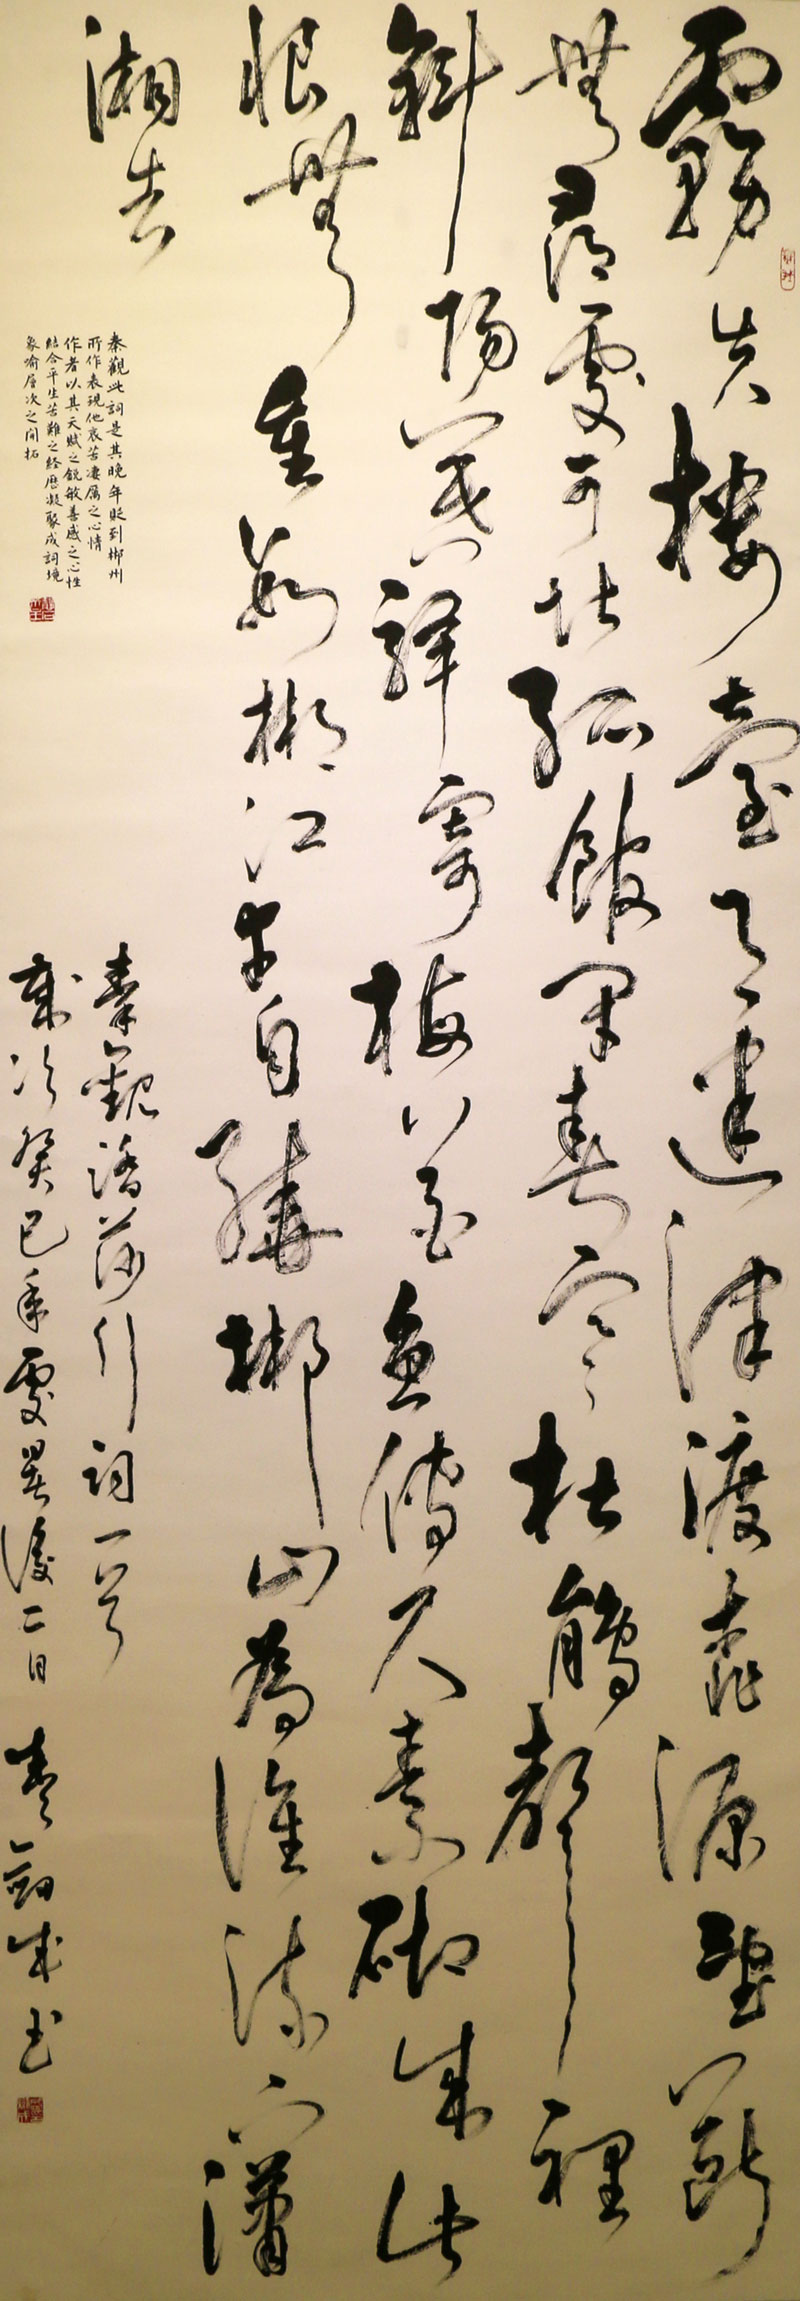 霧失樓臺月迷津渡桃源望斷
無尋處可堪孤館閉春寒杜鵑聲裡
斜陽暮驛寄梅花魚傳尺素砌成此
恨無重數郴江幸自繞郴山為誰流下瀟
湘去
秦觀此詞是其晚年貶到郴州
所作表現他哀苦凄厲之心情
作者以其天賦之銳敏善感之心性
結合平生苦難之經歷凝聚成詞境
象喻層次之開拓
秦觀踏莎行詞一首
歲次癸巳年處暑後二日 書